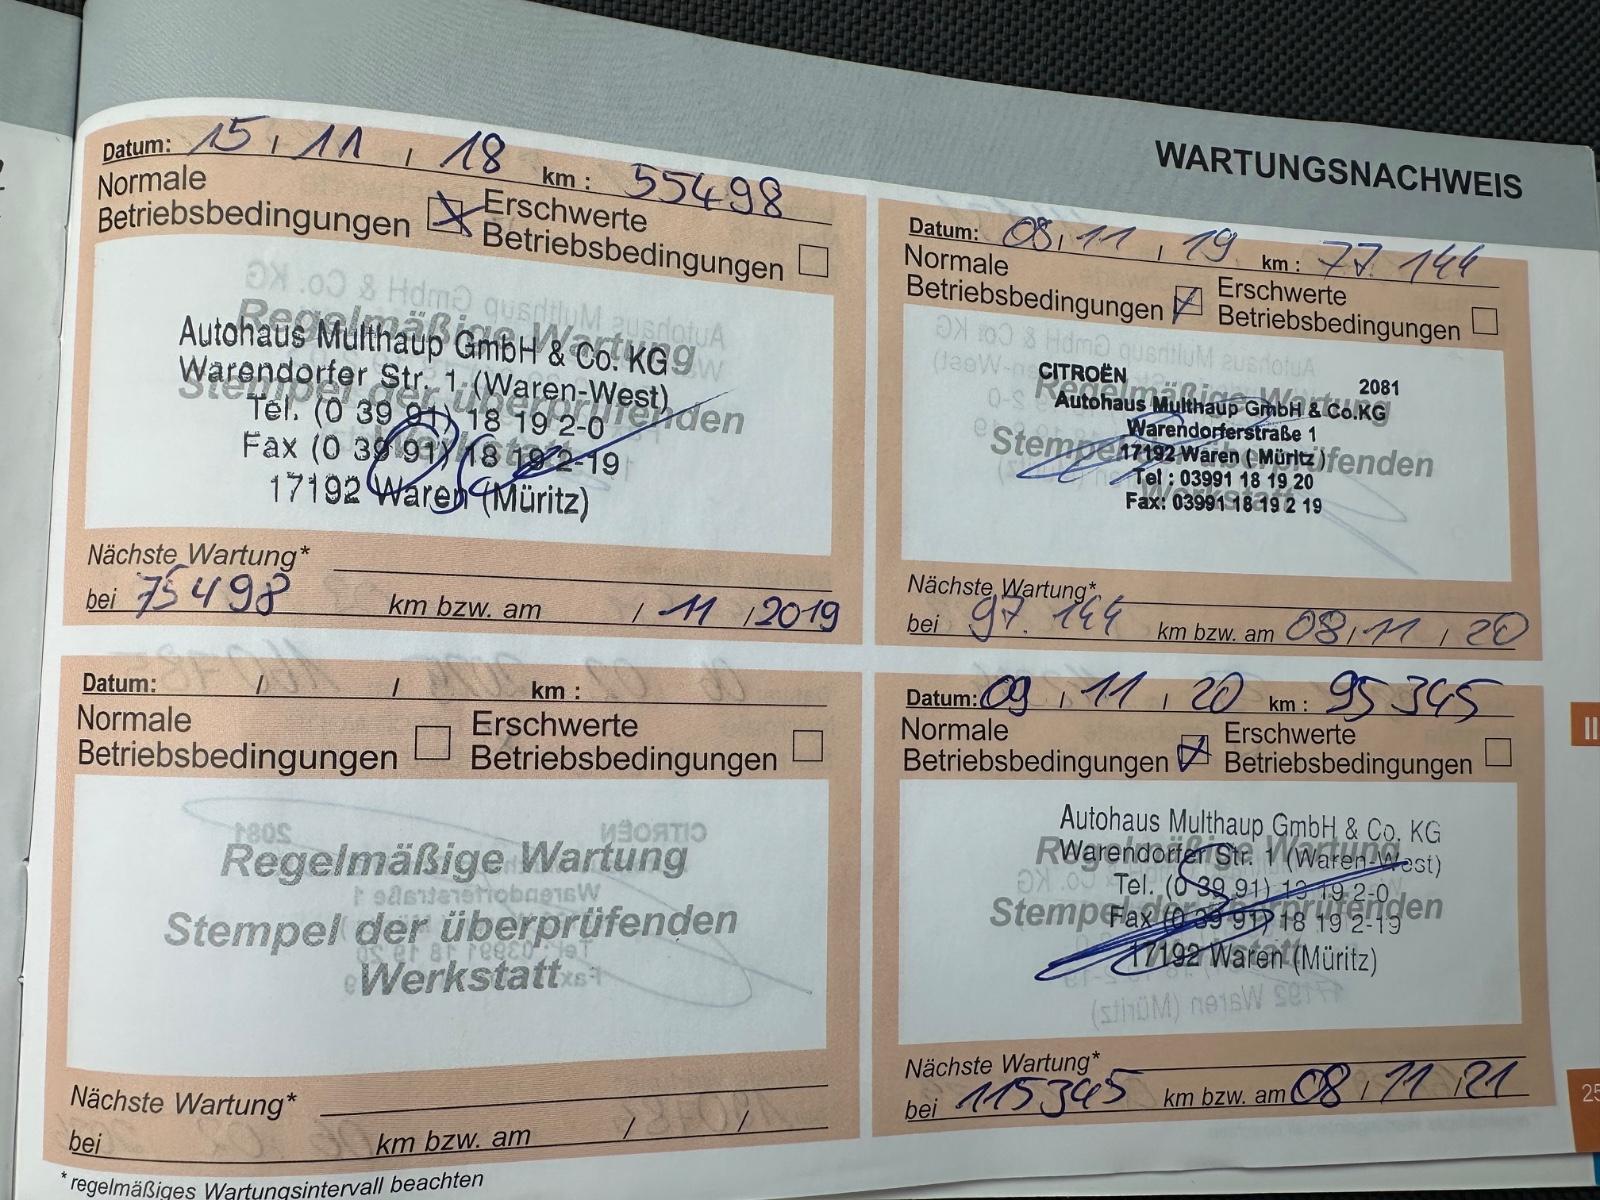 WARTUNGSNACHWEIS
Datum: 15 / 11 / 18 km : 55498
Normale Betriebsbedingungen Erschwerte Betriebsbedingungen
Regelmäßige Wartung
Stempel der überprüfenden
Werkstatt
Autohaus Multhaup GmbH & Co. KG
Warendorfer Str. 1 (Waren-West)
Tel. (0 39 91) 18 19 2-0
Fax (0 39 91) 18 19 2-19
17192 Waren (Müritz)
Nächste Wartung*
bei 75498 km bzw. am / 11 / 2019
Datum: 08 / 11 / 19 km : 77.144
Normale Betriebsbedingungen Erschwerte Betriebsbedingungen
Regelmäßige Wartung
Stempel der überprüfenden
Werkstatt
CITROËN 2081
Autohaus Multhaup GmbH & Co.KG
Warendorferstraße 1
17192 Waren ( Müritz )
Tel : 03991 18 19 20
Fax: 03991 18 19 2 19
Nächste Wartung*
bei 97.144 km bzw. am 08 / 11 / 20
Datum: / / km :
Normale Betriebsbedingungen Erschwerte Betriebsbedingungen
Regelmäßige Wartung
Stempel der überprüfenden
Werkstatt
Nächste Wartung*
bei km bzw. am / /
Datum: 09 / 11 / 20 km : 95345
Normale Betriebsbedingungen Erschwerte Betriebsbedingungen
Regelmäßige Wartung
Stempel der überprüfenden
Werkstatt
Autohaus Multhaup GmbH & Co. KG
Warendorfer Str. 1 (Waren-West)
Tel. (0 39 91) 18 19 2-0
Fax (0 39 91) 18 19 2-19
17192 Waren (Müritz)
Nächste Wartung*
bei 115345 km bzw. am 08 / 11 / 21
* regelmäßiges Wartungsintervall beachten
II
25